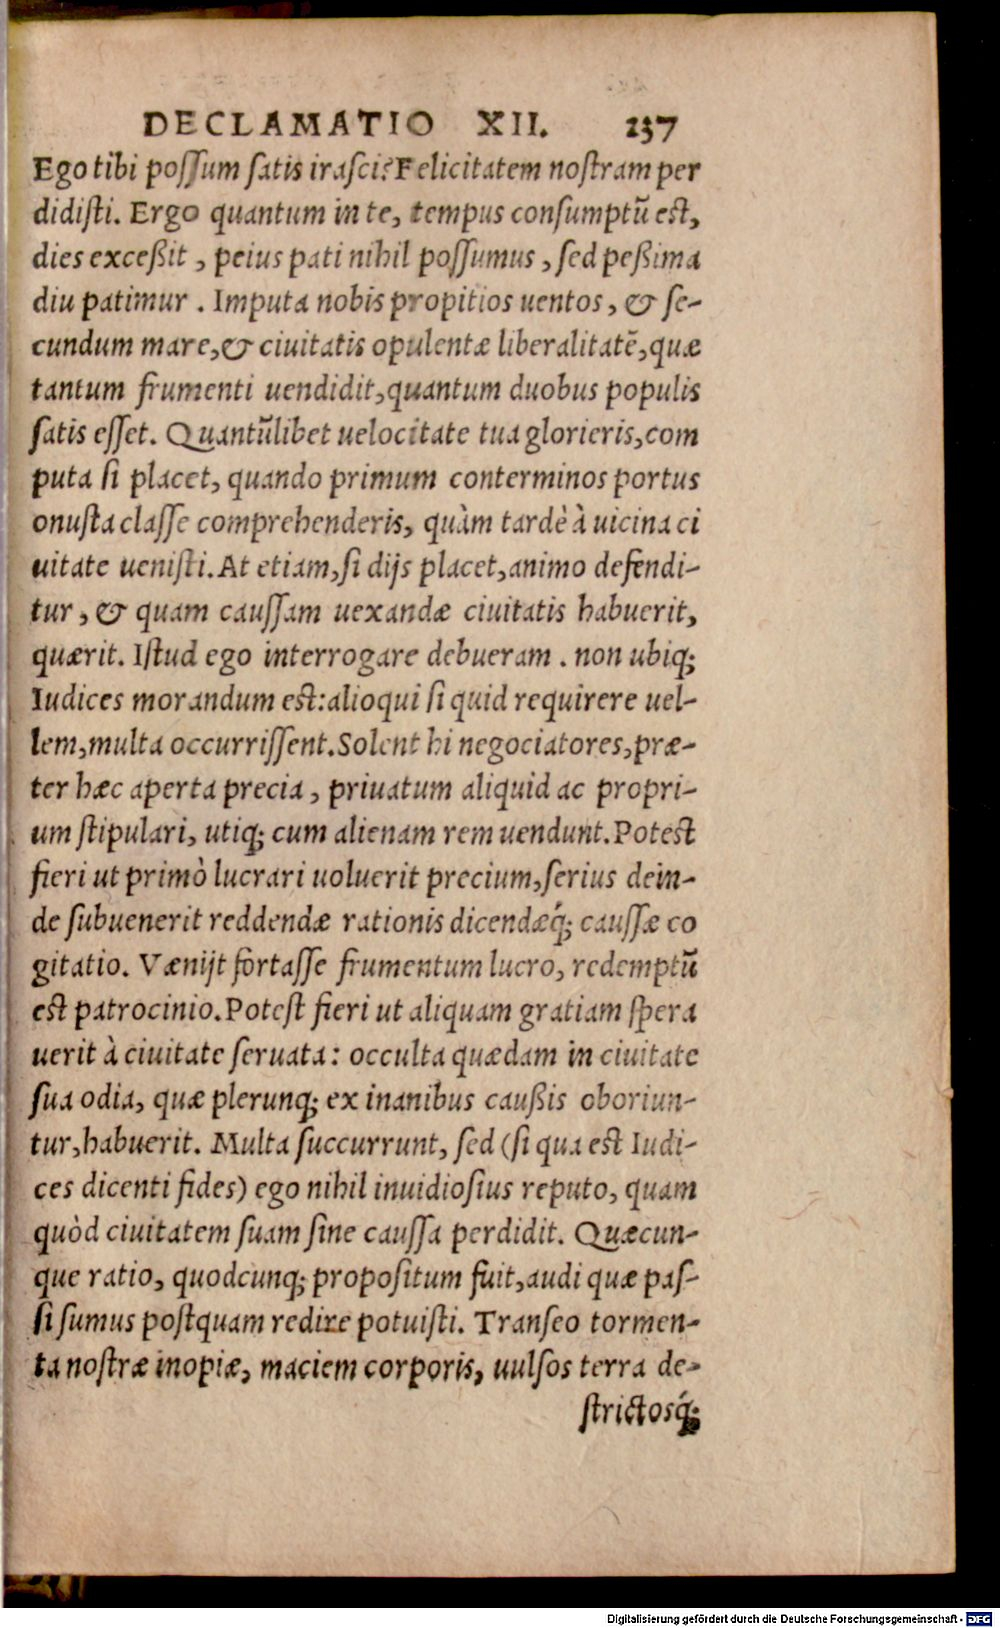 DECLAMATIO XII. 237
Ego tibi possum satis irasci? Felicitatem nostram per
didisti. Ergo quantum in te, tempus consumptũ est,
dies exceßit, peius pati nihil possumus, sed peßima
diu patimur. Imputa nobis propitios uentos, & se-
cundum mare, & ciuitatis opulentæ liberalitatẽ, quæ
tantum frumenti uendidit, quantum duobus populis
satis esset. Quantũlibet uelocitate tua glorieris, com
puta si placet, quando primum conterminos portus
onusta classe comprehenderis, quàm tardè à uicina ci
uitate uenisti. At etiam, si dijs placet, animo defendi-
tur, & quam caussam uexandæ ciuitatis habuerit,
quærit. Istud ego interrogare debueram. non ubiq;
Iudices morandum est: alioqui si quid requirere uel-
lem, multa occurrissent. Solent hi negociatores, præ-
ter hæc aperta precia, priuatum aliquid ac propri-
um stipulari, utiq; cum alienam rem uendunt. Potest
fieri ut primò lucrari uoluerit precium, serius dein-
de subuenerit reddendæ rationis dicendæq́; caussæ co
gitatio. Vænijt fortasse frumentum lucro, redemptũ
est patrocinio. Potest fieri ut aliquam gratiam spera
uerit à ciuitate seruata: occulta quædam in ciuitate
sua odia, quæ plerunq; ex inanibus caußis oboriun-
tur, habuerit. Multa succurrunt, sed (si qua est Iudi-
ces dicenti fides) ego nihil inuidiosius reputo, quam
quòd ciuitatem suam sine caussa perdidit. Quæcun-
que ratio, quodcunq; propositum fuit, audi quæ pas-
si sumus postquam redire potuisti. Transeo tormen-
ta nostræ inopiæ, maciem corporis, uulsos terra de-
strictosq́;
Digitalisierung gefördert durch die Deutsche Forschungsgemeinschaft - DFG